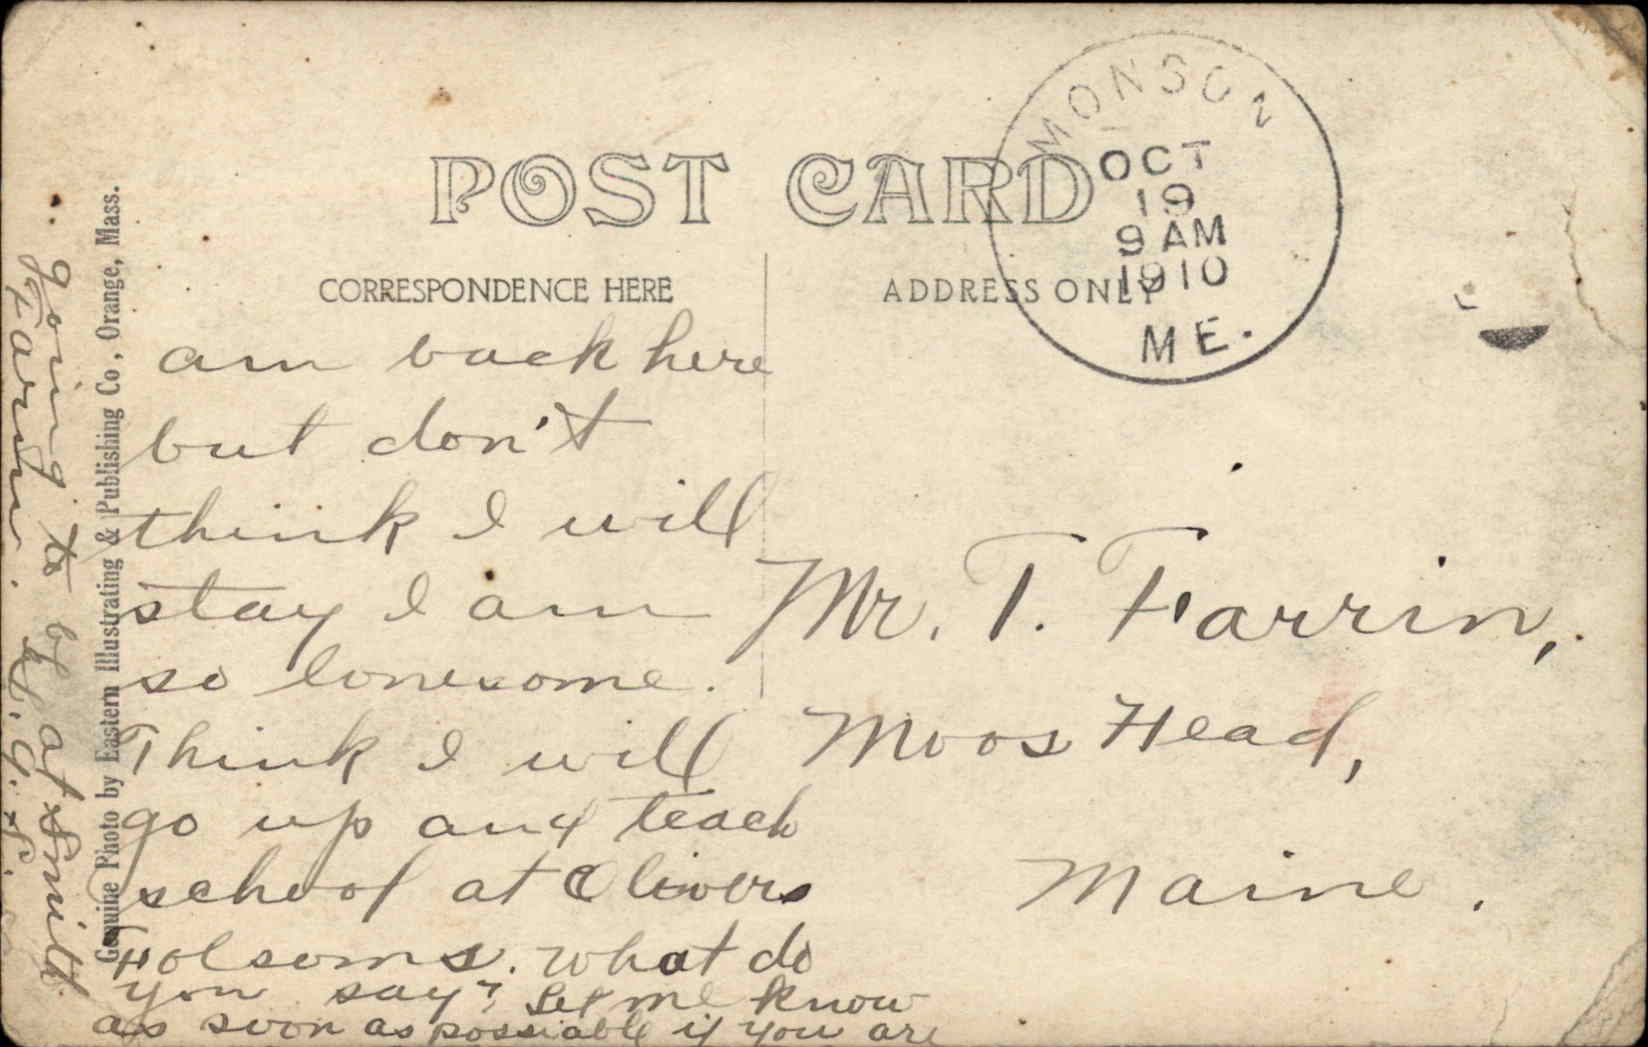 POST CARD
CORRESPONDENCE HERE
ADDRESS ONLY
MONSON
OCT
19
9 AM
1910
ME.
am back here
but don't
think I will
stay I am
so lonesome.
Think I will
go up and teach
school at Olivers
Folsoms. What do
you say? Let me know
as soon as possiable if you are
going to be at Smith
Farm.
Mr. T. Farrin,
Moos Head,
Maine.
Genuine Photo by Eastern Illustrating & Publishing Co., Orange, Mass.